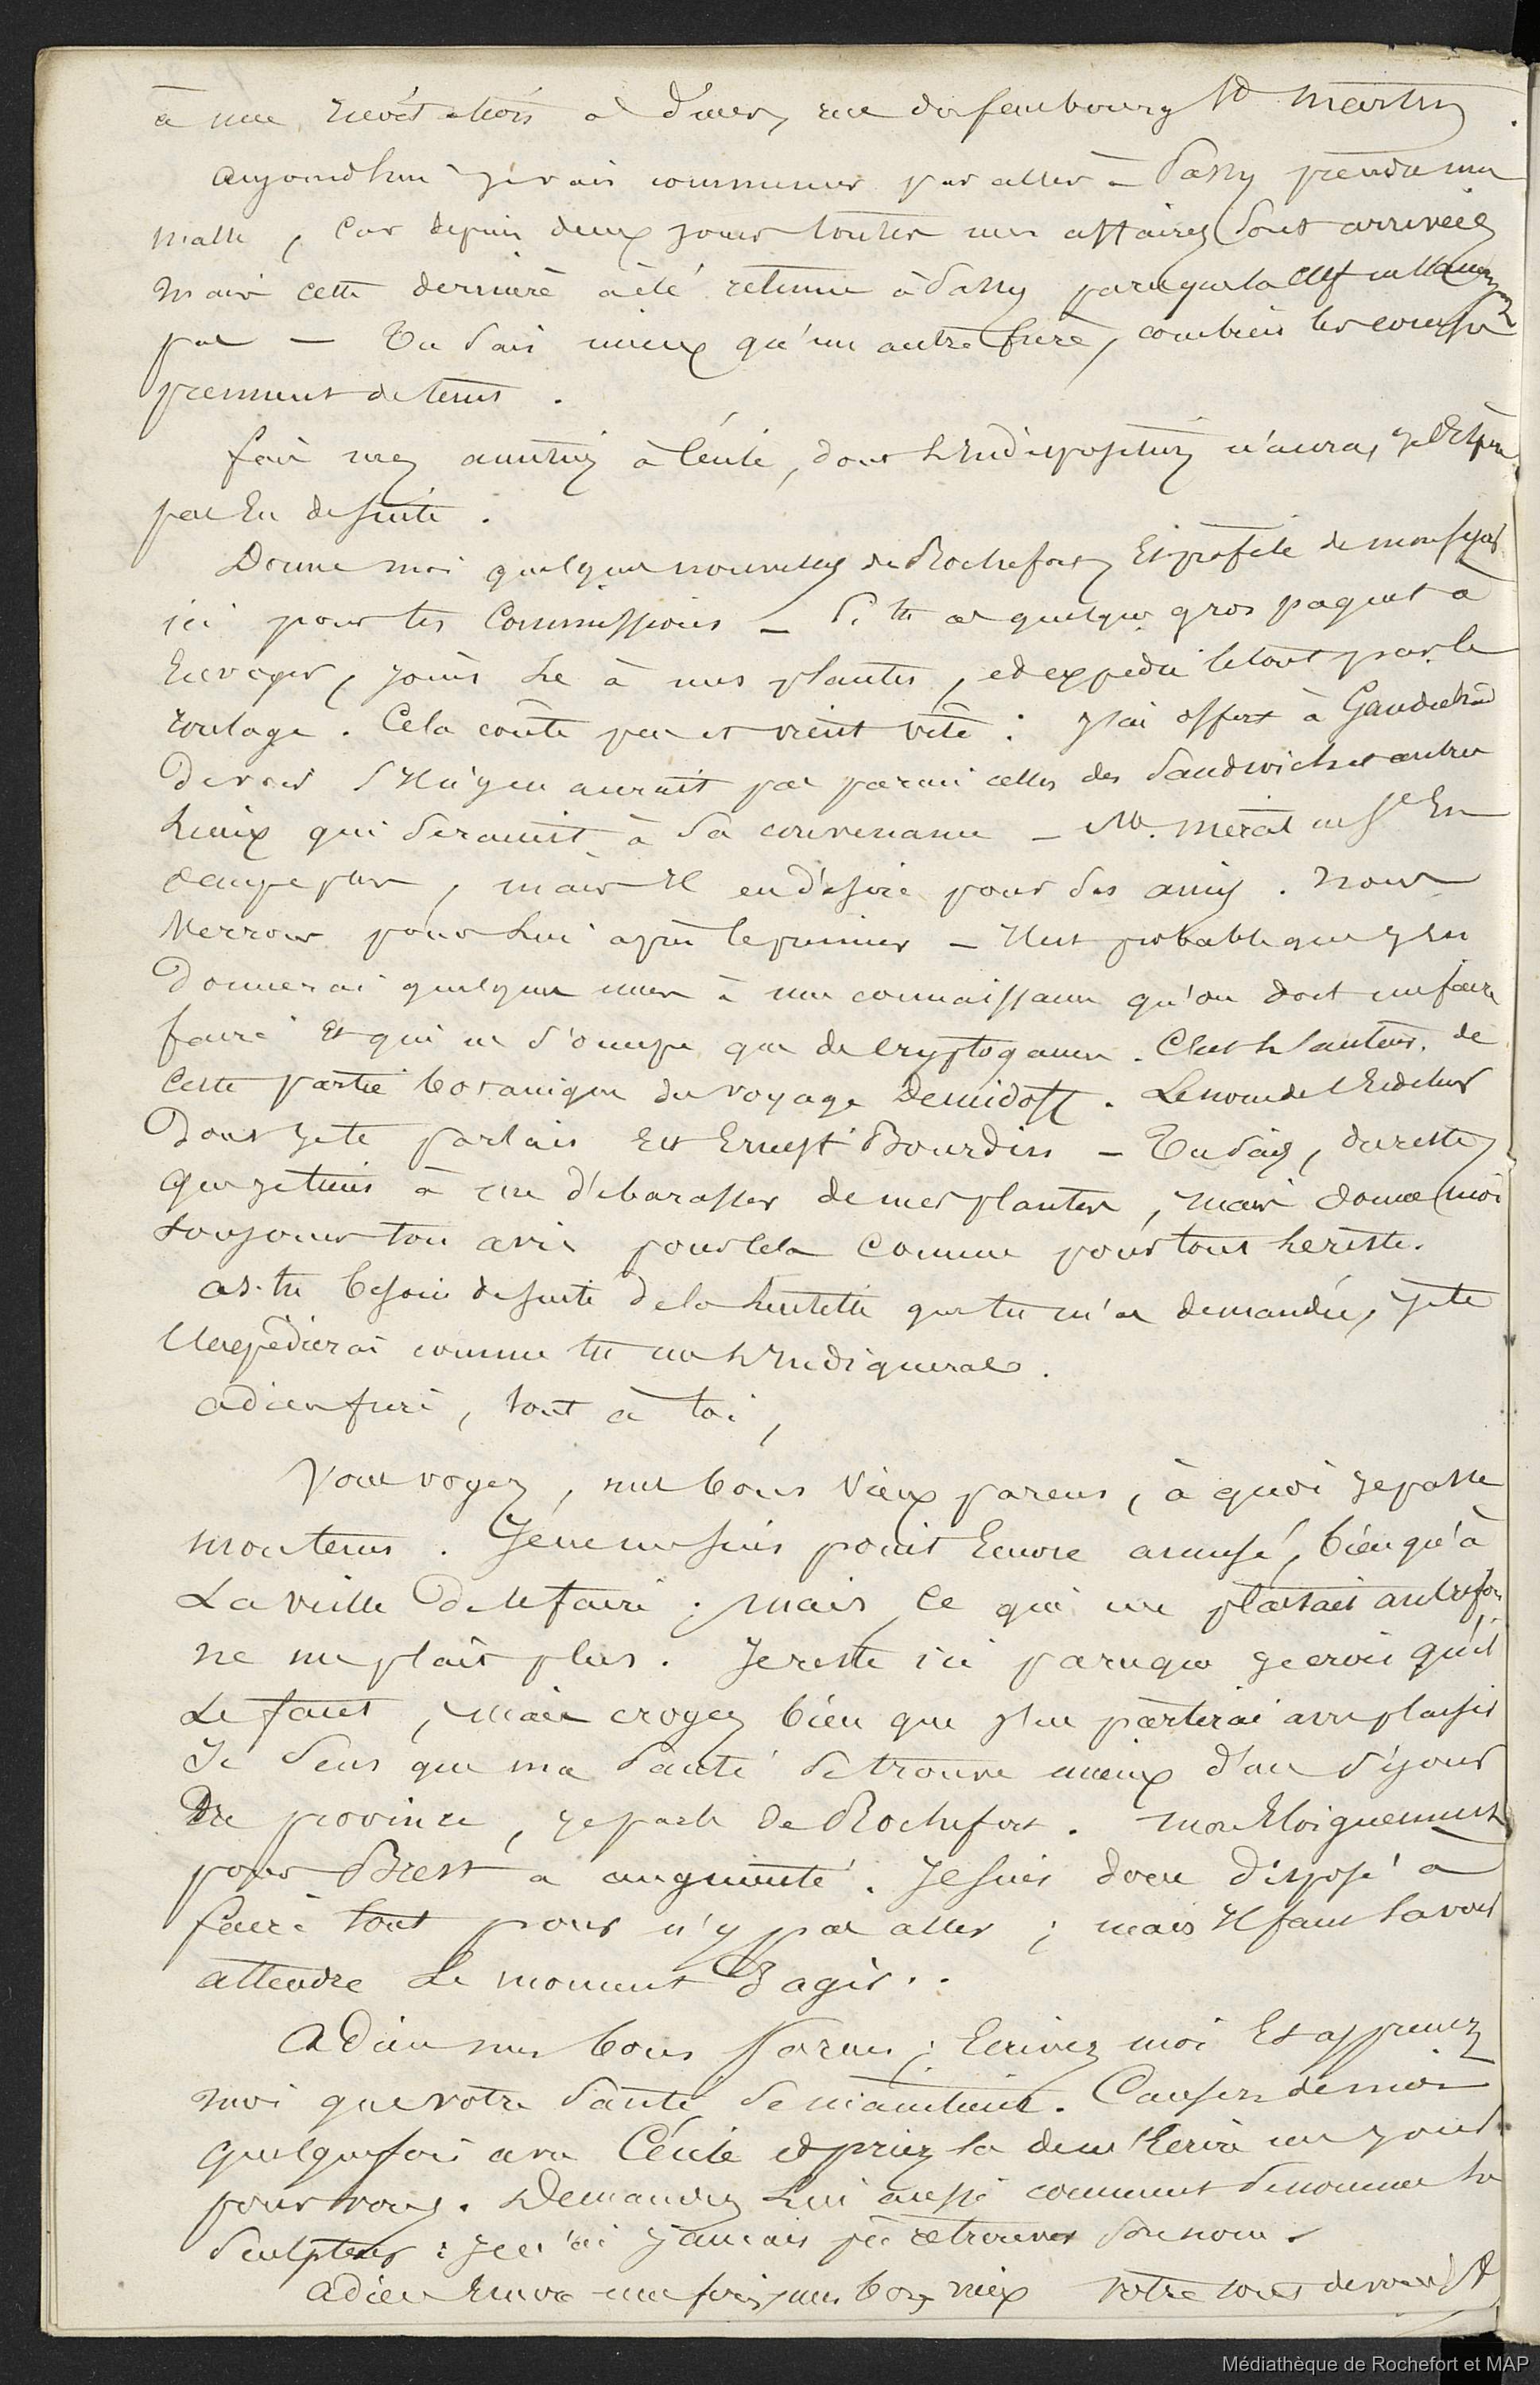 à une récréation à dîner, rue du faubourg St Martin.
Aujourdhui je vais commencer par aller à Passy prendre ma
malle, car depuis deux jours toutes mes affaires sont arrivées
mais cette dernière a été retenue à Passy parceque la clef
pas — Tu sais mieux qu'un autre frère, combien les courses
prennent de tems.
fais mes amitiés à Cécile, dont l'Indisposition n'aura, je l'Espère,
pas Eu de suite.
Donne moi quelques nouvelles de Rochefort, Et profite de mon séjour
ici pour tes Commissions — Si tu as quelque gros paquet à
Envoyer, joins le à mes plantes, et expédie le tout par le
roulage. Cela coûte peu et vient vite : J'ai offert à Gaudichaud
de voir s'Il n'y en aurait pas parmi celles des Sandwich et autres
lieux qui seraient à sa convenance — M. Mérat ne s'En
occupe plus, mais Il en désire pour ses amis. Nous
Verrons pour lui après le premier — Il est probable que j'En
donnerai quelques unes à une connaissance qu'on doit me faire
faire Et qui ne s'occupe que de Cryptogames. C'est l'auteur de
cette partie botanique du voyage Demidoff. Le nom de l'Editeur
dont je te parlais Est Ernest Bourdin — Tu sais, du reste,
que je tiens à me débarasser de mes plantes, mais donne moi
toujours ton avis pour cela comme pour tout le reste.
as-tu besoin de suite de la lentille que tu m'as demandée, je te
l'expédierai comme tu me l'Indiqueras.
adieu frère, tout à toi,
Vous voyez, mes bons Vieux parens, à quoi je passe
mon tems. Je ne me suis point Encore amusé, bien qu'à
La veille de le faire ; mais ce qui me plaisait autrefois
ne me plaît plus. Je reste ici parceque je crois qu'il
Le faut, mais croyez bien que j'En partirai avec plaisir
Je sens que ma santé se trouve mieux d'un séjour
De province, je parle de Rochefort. Mon Eloignement
pour Brest a augmenté. Je suis donc disposé à
faire tout pour n'y pas aller ; mais Il faut savoir
attendre Le moment d'agir..
Adieu mes bons Parens ; Ecrivez moi Et apprenez
moi que votre santé se maintient. Causez de moi
quelquefois avec Cécile et priez la de m'Ecrire un jour
pour vous. Demandez Lui aussi comment se nomme le
Sculpteur : Je n'ai jamais pû retrouver son nom.
adieu Encore une fois, mes bons vieux votre tout dévoué
Médiathèque de Rochefort et MAP